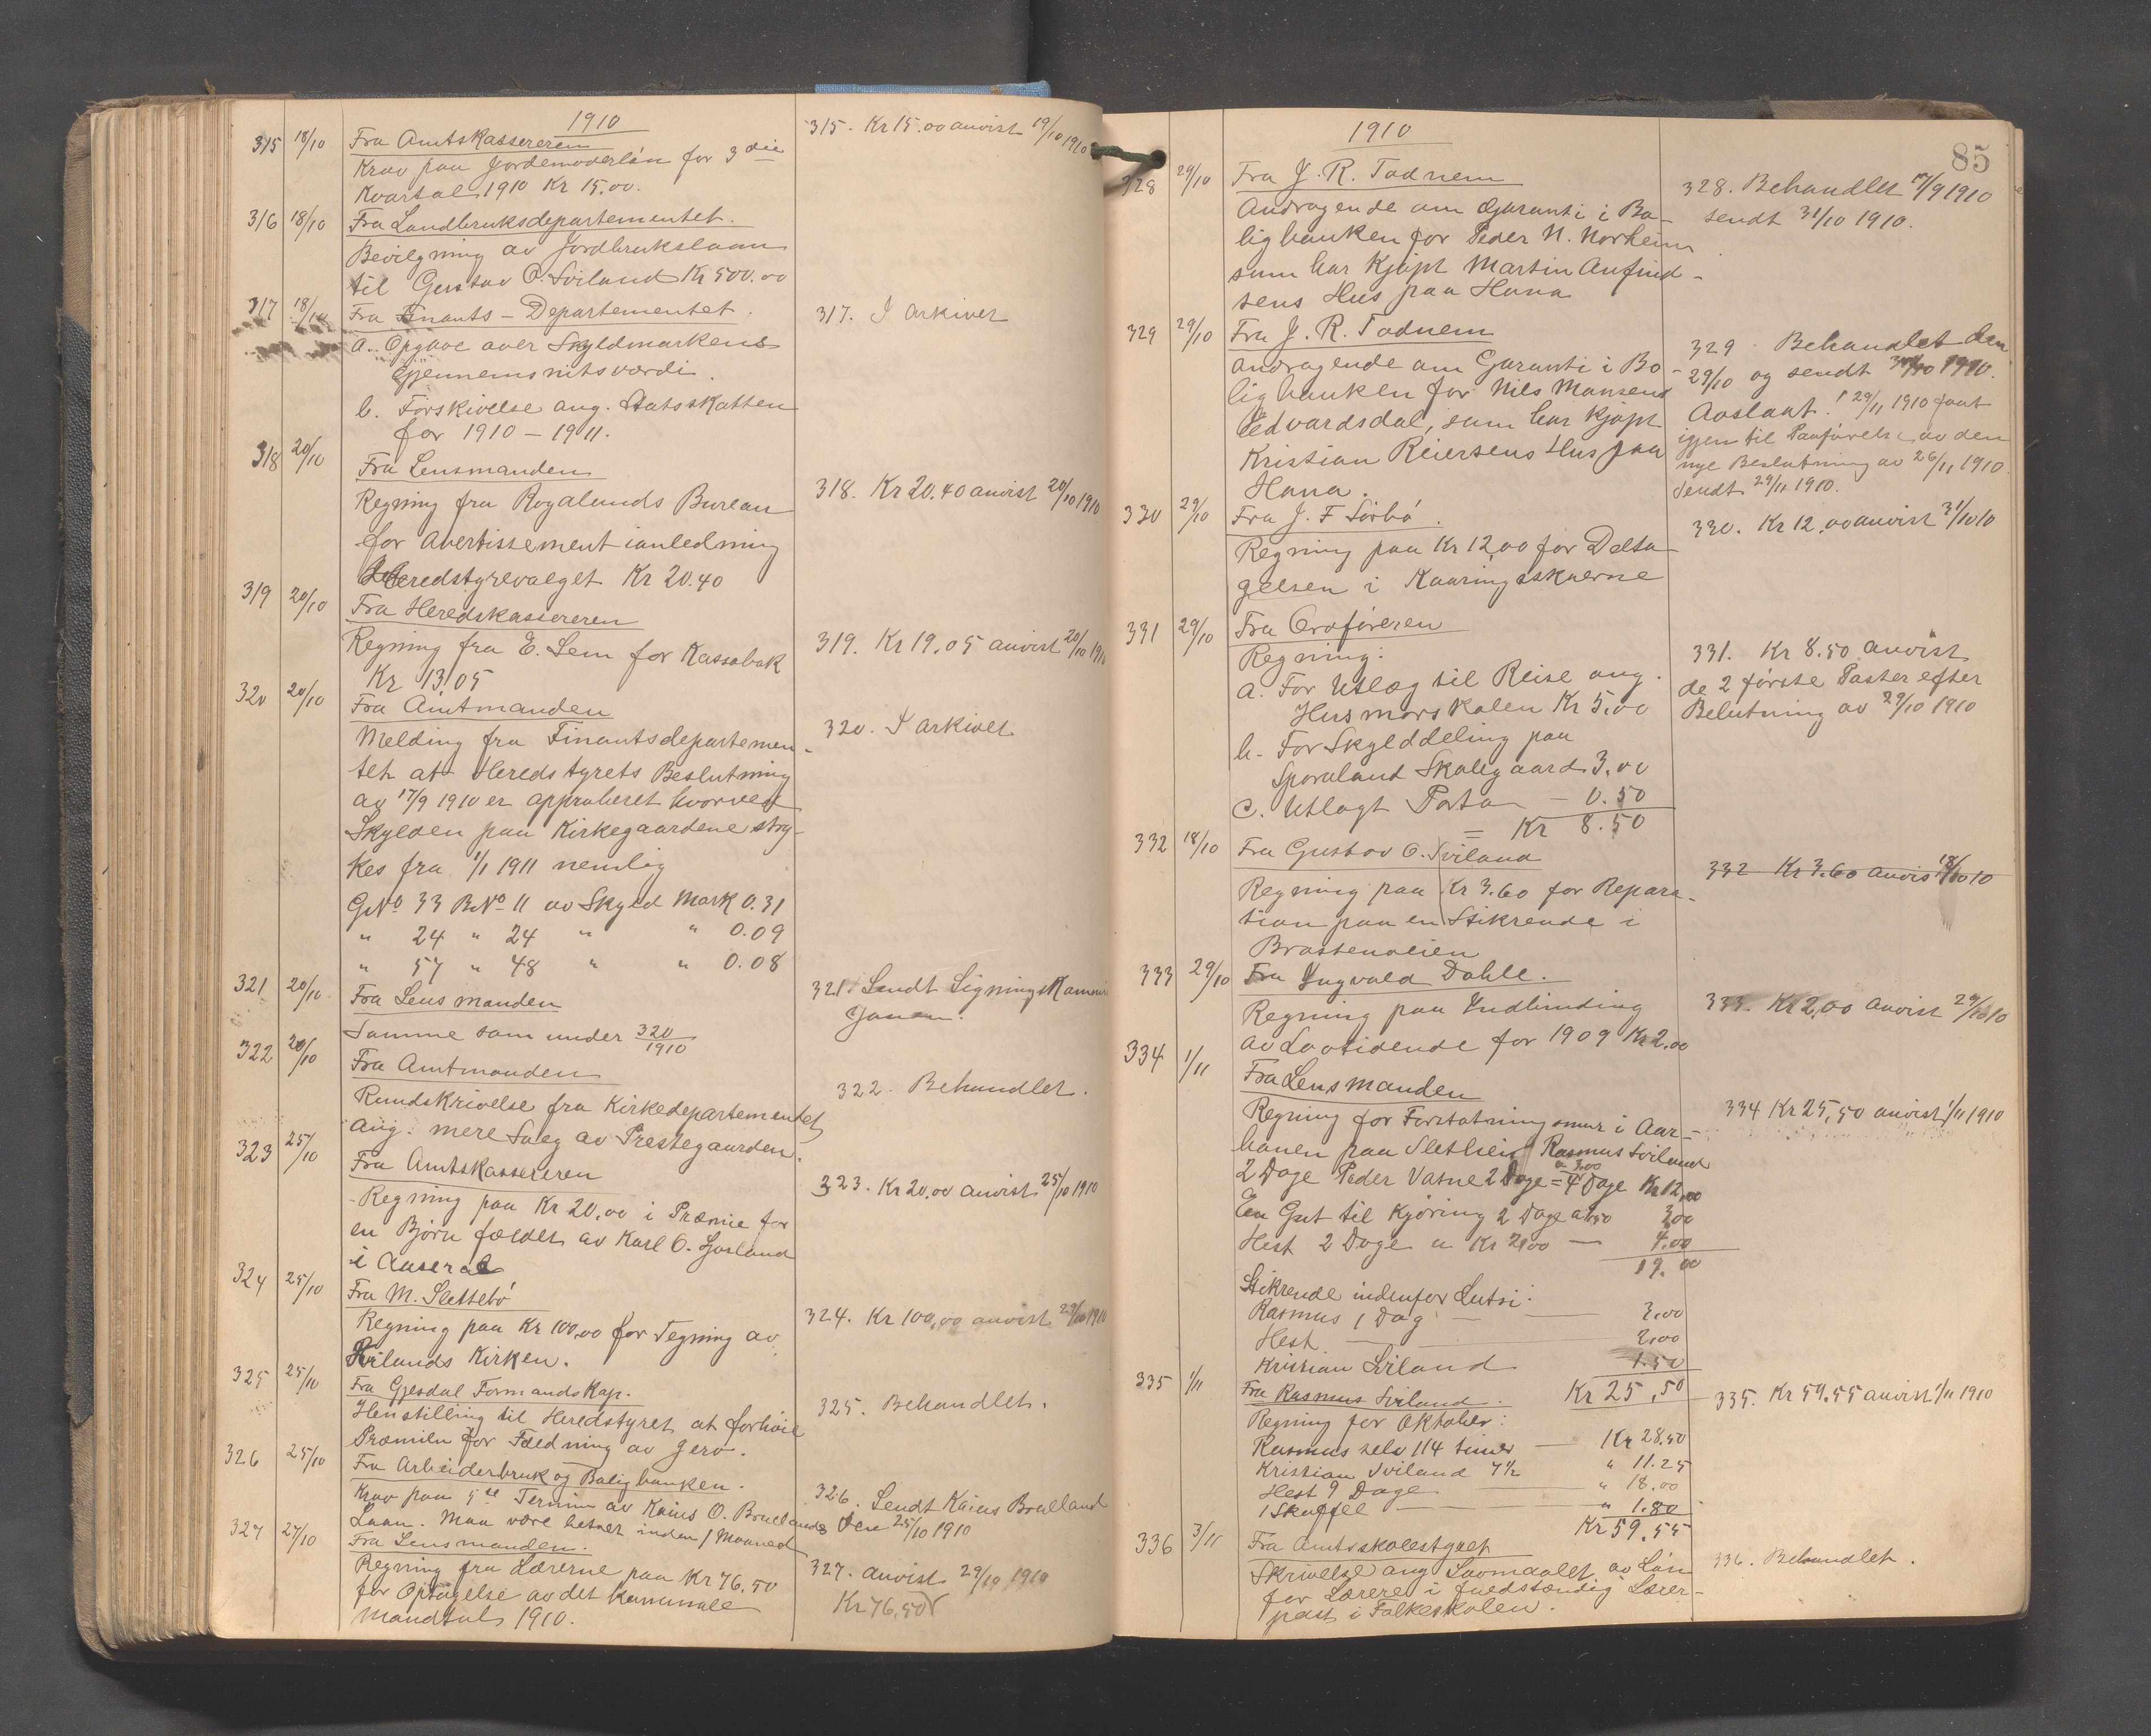 1910
315 18/10 Fra Amtskassereren
Krav paa Jordemoderløn for 3die
Kvartal 1910 Kr 15.00.
315. Kr 15.00 anvist 19/10 1910
316 18/10 Fra Landbruksdepartementet.
Bevilgning av Jordbrukslaan
til Gustav O. Sviland Kr 500.00
317 18/10 Fra Finants-Departementet.
a. Opgave over Skyldmarkens
Gjennemsnitsværdi.
b. Forskivelse ang. Statsskatten
for 1910 – 1911.
317. I arkivet
318 20/10
Fra Lensmanden
Regning fra Rogalands Bureau
for Avertissement ianledning
Heredstyrevalget Kr 20.40
318. Kr 20.40 anvist 20/10 1910
319 20/10
Fra Heredskassereren
Regning fra E. Lem for Kassabok
Kr 13.05
319. Kr 19.05 anvist 20/10 1910
320 20/10 Fra Amtmanden
Melding fra Finantsdepartemen-
tet at Heredstyrets Beslutning
av 17/9 1910 er approberet hvorved
Skylden paa Kirkegaardene stry-
kes fra 1/1 1911 nemlig
GNo 33 BNo 11 av Skyld Mark 0.31
" 24 " 24 " " 0.09
" 57 " 48 " " 0.08
320. I arkivet
321 20/10 Fra Lensmanden
Samme som under 320/1910
321. Sendt Ligningskommi
sjonen.
322 20/10 Fra Amtmanden
Rundskrivelse fra Kirkedepartementet
ang. mere Salg av Prestegaarden.
322. Behandlet.
323 25/10
Fra Amtskassereren
Regning paa Kr 20,00 i Præmie for
en Bjørn fældet av Karl O. Ljosland
i Aaseral
323. Kr 20,00 anvist 25/10 1910
324 25/10 Fra M. Slettebø
Regning paa Kr 100,00 for Tegning av
Hølands Kirken.
324. Kr 100,00 anvist 29/10 1910
325 25/10 Fra Gjesdal Formandskap.
Henstilling til Heredstyret at forhøie
Præmien for Fældning av Jerv.
325. Behandlet.
326 25/10 Fra Arbeiderbruk og Boligbanken.
Krav paa 5te Termin av Kaius O. Bruelands
Laan. Maa være betalt inden 1 Maaned
326. Sendt Kaius Brueland
den 25/10 1910
327 27/10 Fra Lensmanden.
Regning fra Lærerne paa Kr 76.50
for Optagelse av det kommunale
Mandtal 1910.
327. anvist 29/10 1910
Kr 76.50
85
1910
328 29/10 Fra J. R. Todnem
Andragende om Garanti i Bo-
ligbanken for Peder N. Norheim
som har kjøpt Martin Anfind-
sens Hus paa Hana
328. Behandlet 17/9 1910
sendt 31/10 1910.
329 29/10 Fra J. R. Todnem
Andragende om Garanti i Bo-
ligbanken for Nils Monsens
Edvardsdal, som har kjøpt
Kristian Reiersens Hus paa
Hana.
329. Behandlet den
29/10 og sendt 31/10 1910.
Avslaat. 29/11 1910 faat
igjen til Paaførelse av den
nye Beslutning av 26/11 1910.
Sendt 29/11 1910.
330 29/10 Fra J. F Sørbø.
Regning paa Kr 12,00 for Delta-
gelsen i Kaaringsskuerne
330. Kr 12,00 anvist 31/10 10
331 29/10 Fra Ordføreren
Regning:
a. For Utlæg til Reise ang.
Husmorskolen Kr 5.00
b. For Skylddeling paa
Sporaland Skolegaard 3,00
c. Utlagt Porto – 0.50
= Kr 8.50
331. Kr 8.50 anvist
de 2 første Poster efter
Belutning av 29/10 1910
332 18/10 Fra Gustav O. Sviland
Regning paa Kr 3.60 for Repara-
tion paa en Stikrende i
Brattenveien
332 Kr 3.60 anvist 18/10 10
333 29/10 Fra Yngvald Dahle.
Regning paa Indbinding
av Lovtidende for 1909 Kr 2.00
333. Kr 2,00 anvist 29/10 10
334 1/11 Fra Lensmanden
Regning for Forstøtningsmur i Aar-
banen paa Slettheien Rasmus Sviland
2 Dage Peder Vatne 2 Dage = 4 Dage a 3.00 Kr 12,00
En Gut til Kjøring 2 Dage a 1.50 3,00
Hest 2 Dage a Kr 2,00 — 4.00
19.00
Stikrende indenfor Lutsi:
Rasmus 1 Dag — 3.00
Hest 2.00
Kristian Sviland 1.50
Kr 25.50
334 Kr 25,50 anvist 1/11 1910
335 1/11 Fra Rasmus Sviland.
Regning for Oktober:
Rasmus selv 114 timer — Kr 28.50
Kristian Sviland 7 1/2 " 11.25
Hest 9 Dage " 18.00
1 Skuffel " 1.80
Kr 59.55
335. Kr 59.55 anvist 1/11 1910
336 3/11 Fra Amtsskolestyret
Skrivelse ang Lovmaalet av Løn
for Lærere i fuldstændig Lærer-
post i Folkeskolen.
336. Behandlet.